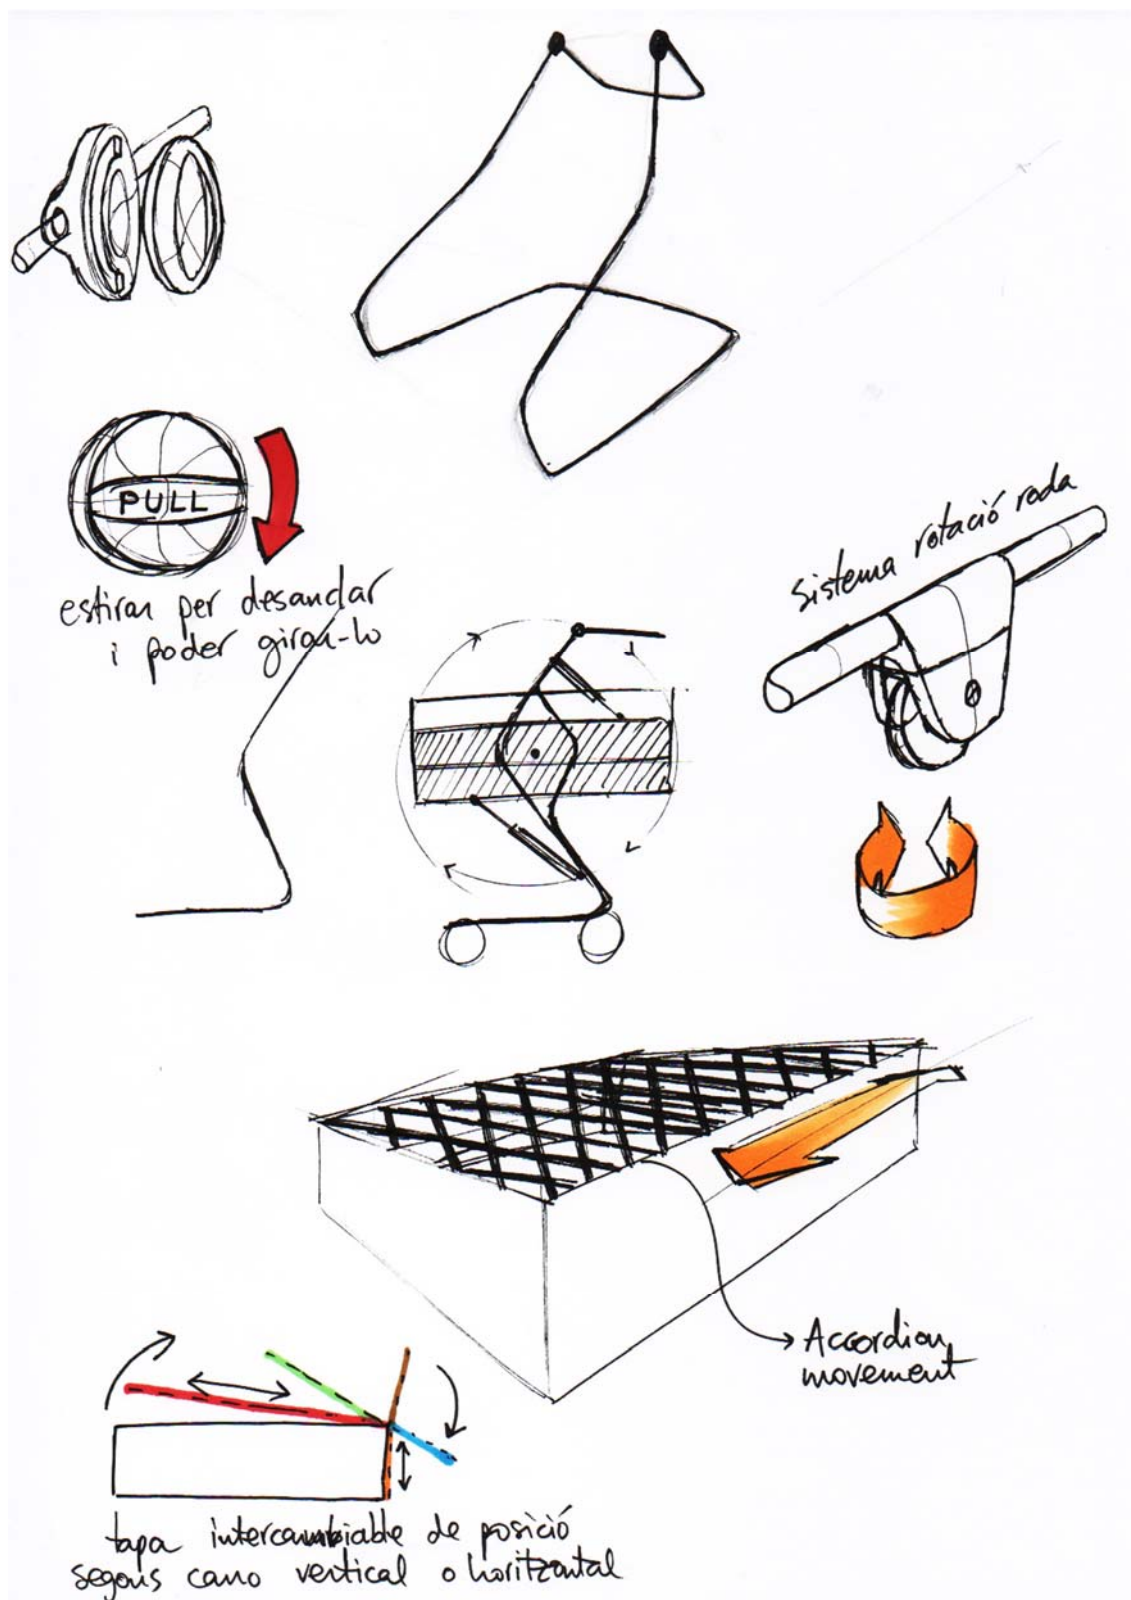 PULL
estirar per desanclar
i poder girar-lo
sistema rotació roda
Accordion
movement
tapa intercambiable de posició
segons carro vertical o horitzontal